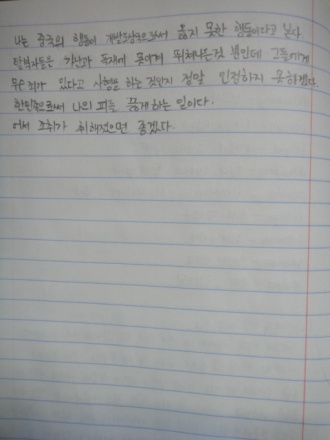 나는 중국의 행동이 개발도상국으로써 옳지 못한 행동이라고 본다.
탈북자들은 가난과 독재에 못이겨 뛰쳐나온것 뿐인데 그들에게
무슨 죄가 있다고 사형을 하는 것인지 정말 인정하지 못하겠다.
한민족으로써 나의 피를 끓게하는 일이다.
어서 조취가 취해졌으면 좋겠다.